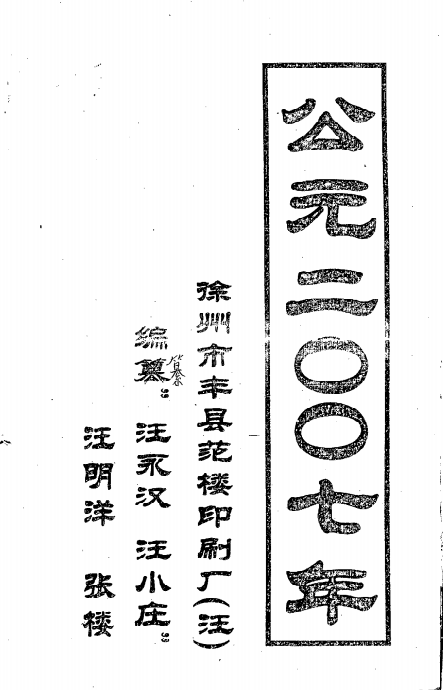 公元二〇〇七年
徐州市丰县范楼印刷厂(汪)
编纂：汪永汉 汪小庄：
汪明洋 张楼